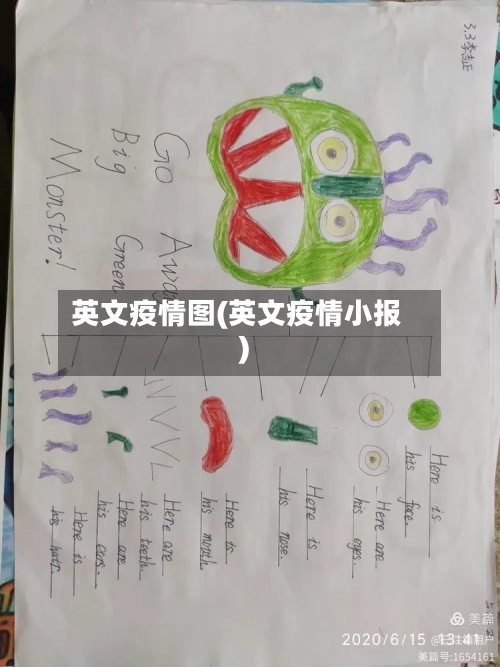 3.3李吉正
Go Away
Big Green
Monster!
英文疫情图(英文疫情小报
)
Here is
his face.
Here are
his eyes.
Here is
his nose.
Here is
his mouth.
Here are
his teeth.
Here are
his ears.
Here is
his hair.
美篇
2020/6/15 13:41
美篇号:1654161